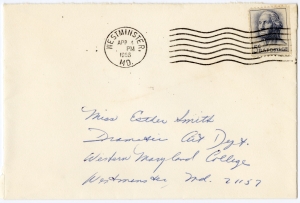 WESTMINSTER,
APR 1
PM
MD.
Miss Esther Smith
Dramatic Art Dept.
Western Maryland College
Westminster Md. 21157